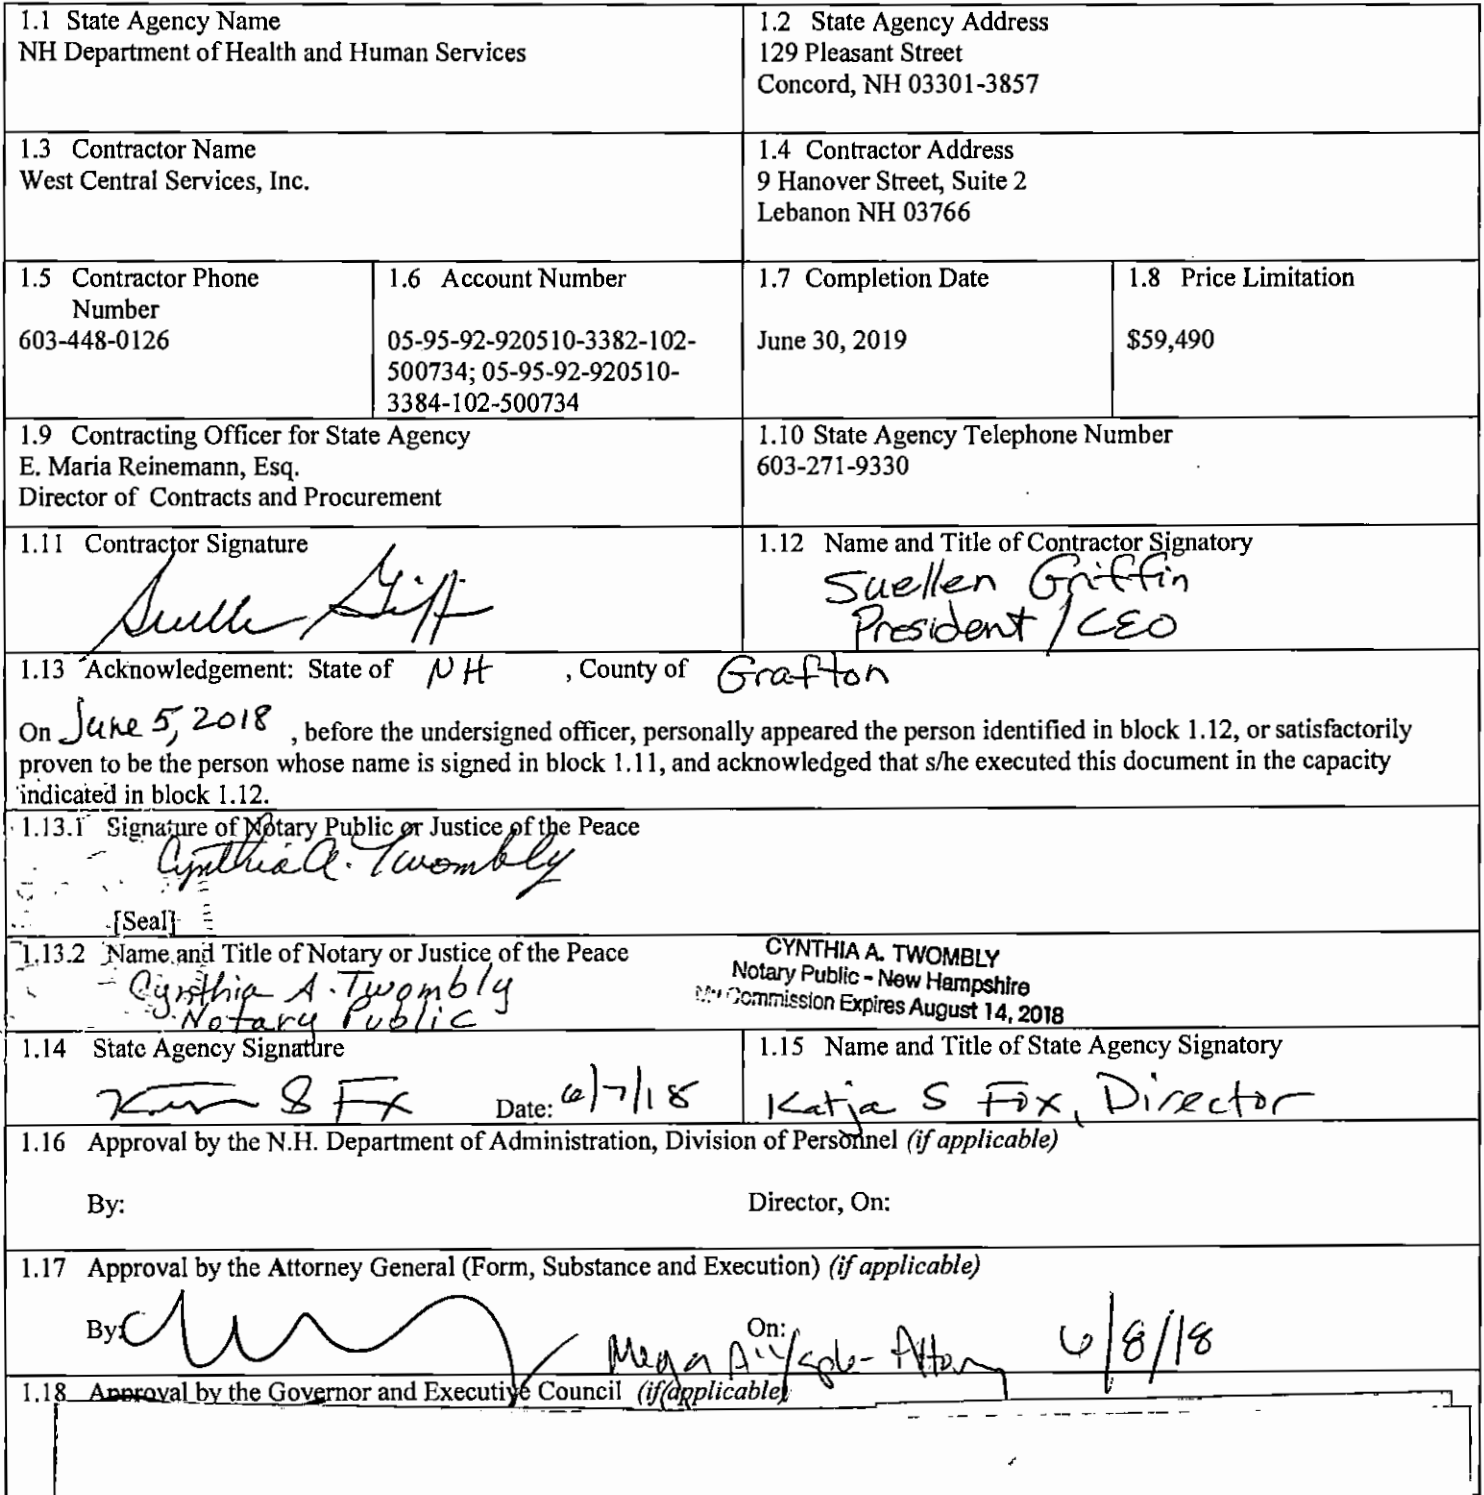 1.1 State Agency Name
NH Department of Health and Human Services
1.2 State Agency Address
129 Pleasant Street
Concord, NH 03301-3857
1.3 Contractor Name
West Central Services, Inc.
1.4 Contractor Address
9 Hanover Street, Suite 2
Lebanon NH 03766
1.5 Contractor Phone
Number
603-448-0126
1.6 Account Number
05-95-92-920510-3382-102-
500734; 05-95-92-920510-
3384-102-500734
1.7 Completion Date
June 30, 2019
1.8 Price Limitation
$59,490
1.9 Contracting Officer for State Agency
E. Maria Reinemann, Esq.
Director of Contracts and Procurement
1.10 State Agency Telephone Number
603-271-9330
1.11 Contractor Signature
1.12 Name and Title of Contractor Signatory
Suellen Griffin
President / CEO
1.13 Acknowledgement: State of NH , County of Grafton
On June 5, 2018 , before the undersigned officer, personally appeared the person identified in block 1.12, or satisfactorily
proven to be the person whose name is signed in block 1.11, and acknowledged that s/he executed this document in the capacity
indicated in block 1.12.
1.13.1 Signature of Notary Public or Justice of the Peace
Cynthia A. Twombly
[Seal]
1.13.2 Name and Title of Notary or Justice of the Peace
Cynthia A. Twombly
Notary Public
CYNTHIA A. TWOMBLY
Notary Public - New Hampshire
My Commission Expires August 14, 2018
1.14 State Agency Signature
S Fox Date: 6/7/18
1.15 Name and Title of State Agency Signatory
Katja S Fox, Director
1.16 Approval by the N.H. Department of Administration, Division of Personnel (if applicable)
By: Director, On:
1.17 Approval by the Attorney General (Form, Substance and Execution) (if applicable)
By: On: 6/8/18
1.18 Approval by the Governor and Executive Council (if applicable)